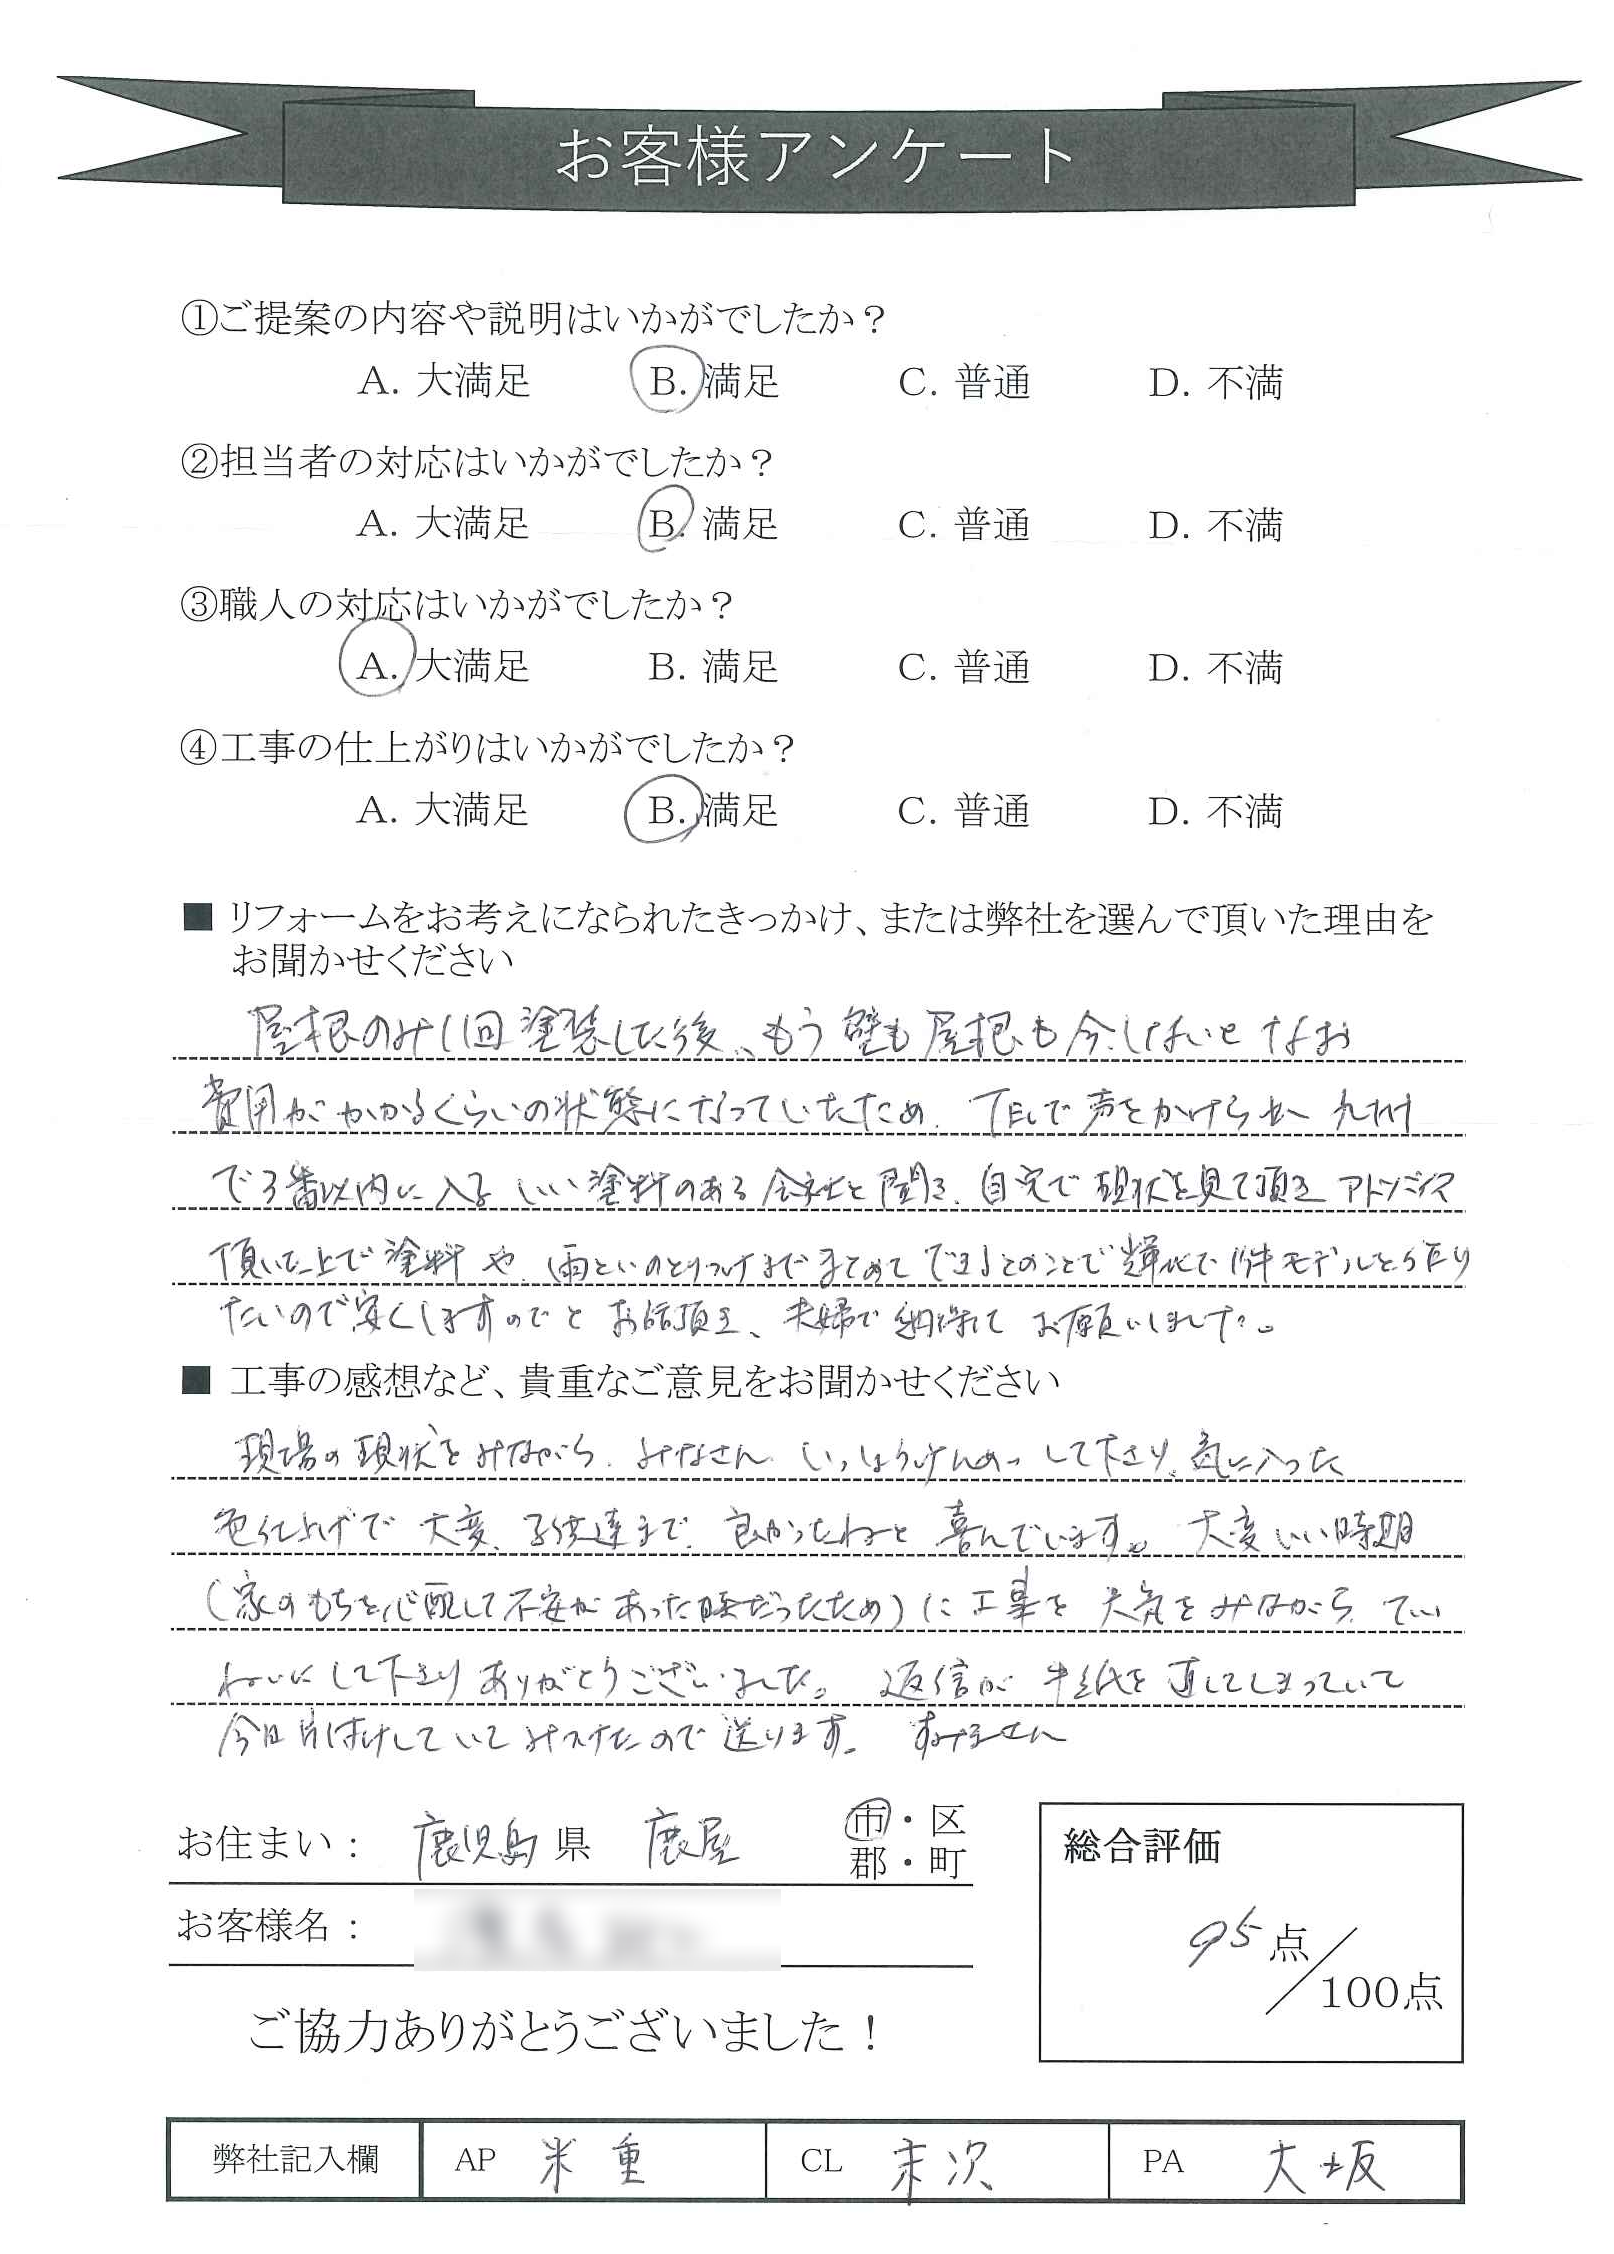 お客様アンケート
①ご提案の内容や説明はいかがでしたか？
A. 大満足 B. 満足 C. 普通 D. 不満
②担当者の対応はいかがでしたか？
A. 大満足 B. 満足 C. 普通 D. 不満
③職人の対応はいかがでしたか？
A. 大満足 B. 満足 C. 普通 D. 不満
④工事の仕上がりはいかがでしたか？
A. 大満足 B. 満足 C. 普通 D. 不満
■ リフォームをお考えになられたきっかけ、または弊社を選んで頂いた理由を
お聞かせください
屋根のみ1回塗装した後、もう壁も屋根も今しないとなお
費用がかかるくらいの状態になっていたため、TELで声をかけられ九州
で3番以内に入るいい塗料のある会社と聞き、自宅で現状を見て頂きアドバイス
頂いた上で塗料や、雨といのとりつけまでまとめてできるとのことで輝北で1件モデルとう作り
たいので安くしますのでとお話頂き、夫婦で納得してお願いしました。
■ 工事の感想など、貴重なご意見をお聞かせください
現場の現状をみながら、みなさん、いっしょうけんめいして下さり、気に入った
色仕上げで大変、子供達まで、良かったねと喜んでいます。大変いい時期
(家のもちを心配して不安があった時だったため)に工事を天気をみながら、てい
ねいにして下さりありがとうございました。返信が手紙を直してしまっていて
今日片付けしていてみつけたので送ります。すみません
お住まい： 鹿児島県 鹿屋 市・区
郡・町
お客様名：
総合評価
95点／100点
ご協力ありがとうございました！
弊社記入欄 AP 米重 CL 末次 PA 大坂